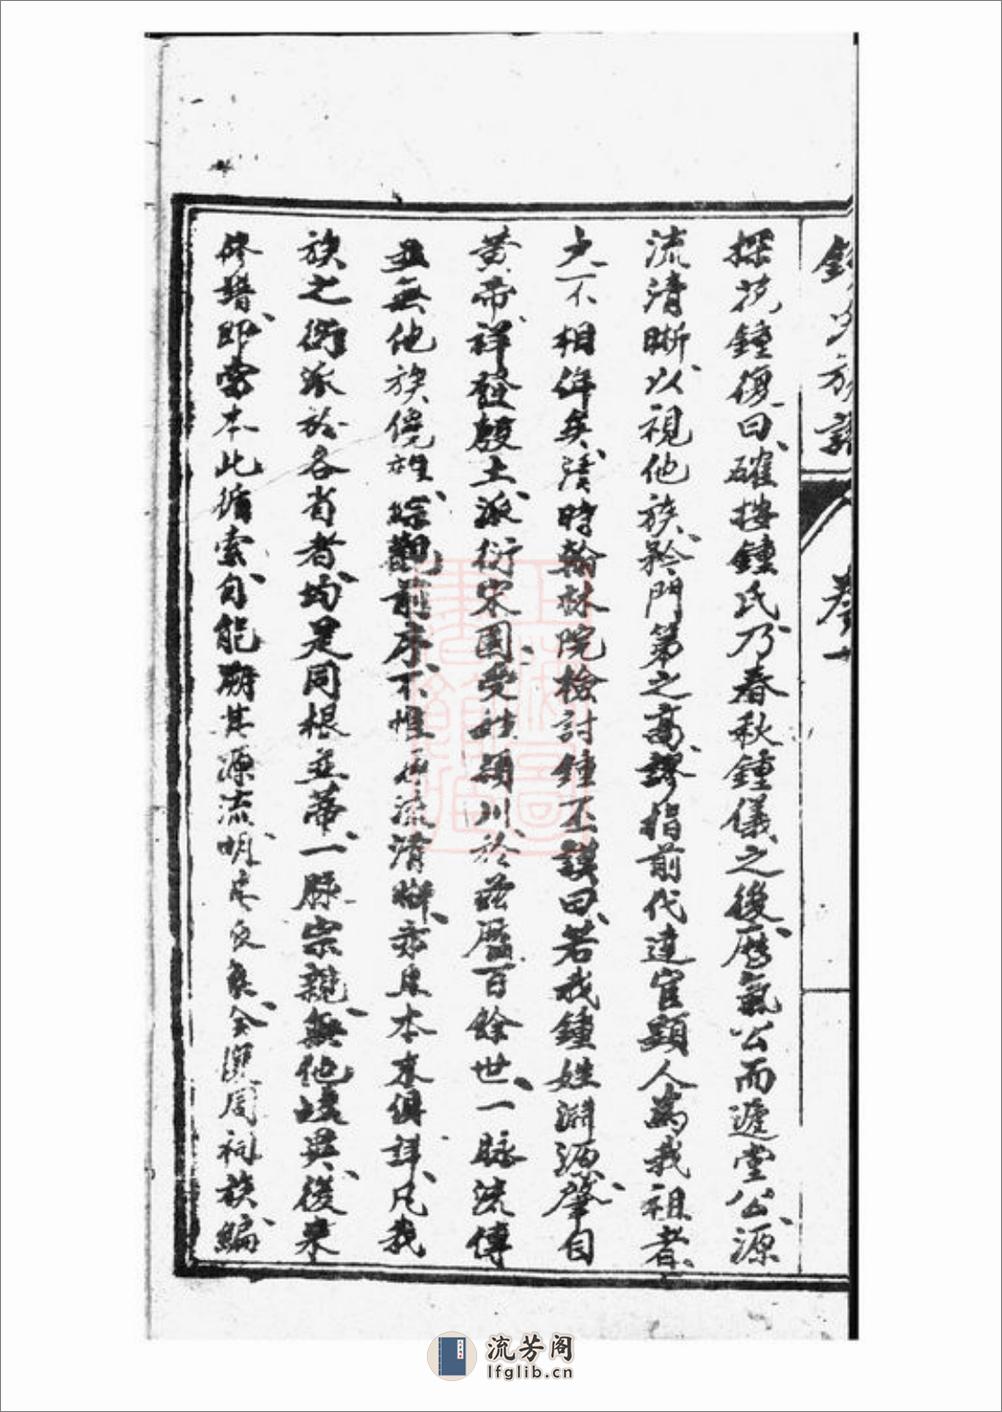 鍾氏族譜 卷一
探花鍾復曰、確按鍾氏乃春秋鍾儀之後、歷氣公而遞堂公、源
流清晰、以視他族矜門第之高、謬指前代達官顯人為我祖者、
大不相侔矣、清時翰林院檢討鍾丕謨曰、若我鍾姓淵源肇自
黃帝、祥發殷土、派衍宋國、受姓潁川、於茲歷百餘世、一脉流傳
並無他族僥雜、綜觀前序、不惟源流清晰、亦且本末俱詳、凡我
族之衍派於各省者、均是同根並蒂、一脉宗親、無他歧異、後來
修譜、即當本此循索、自能朔其源流、明 全匯同祠族編、
上海圖書館藏
流芳阁
lfglib.cn